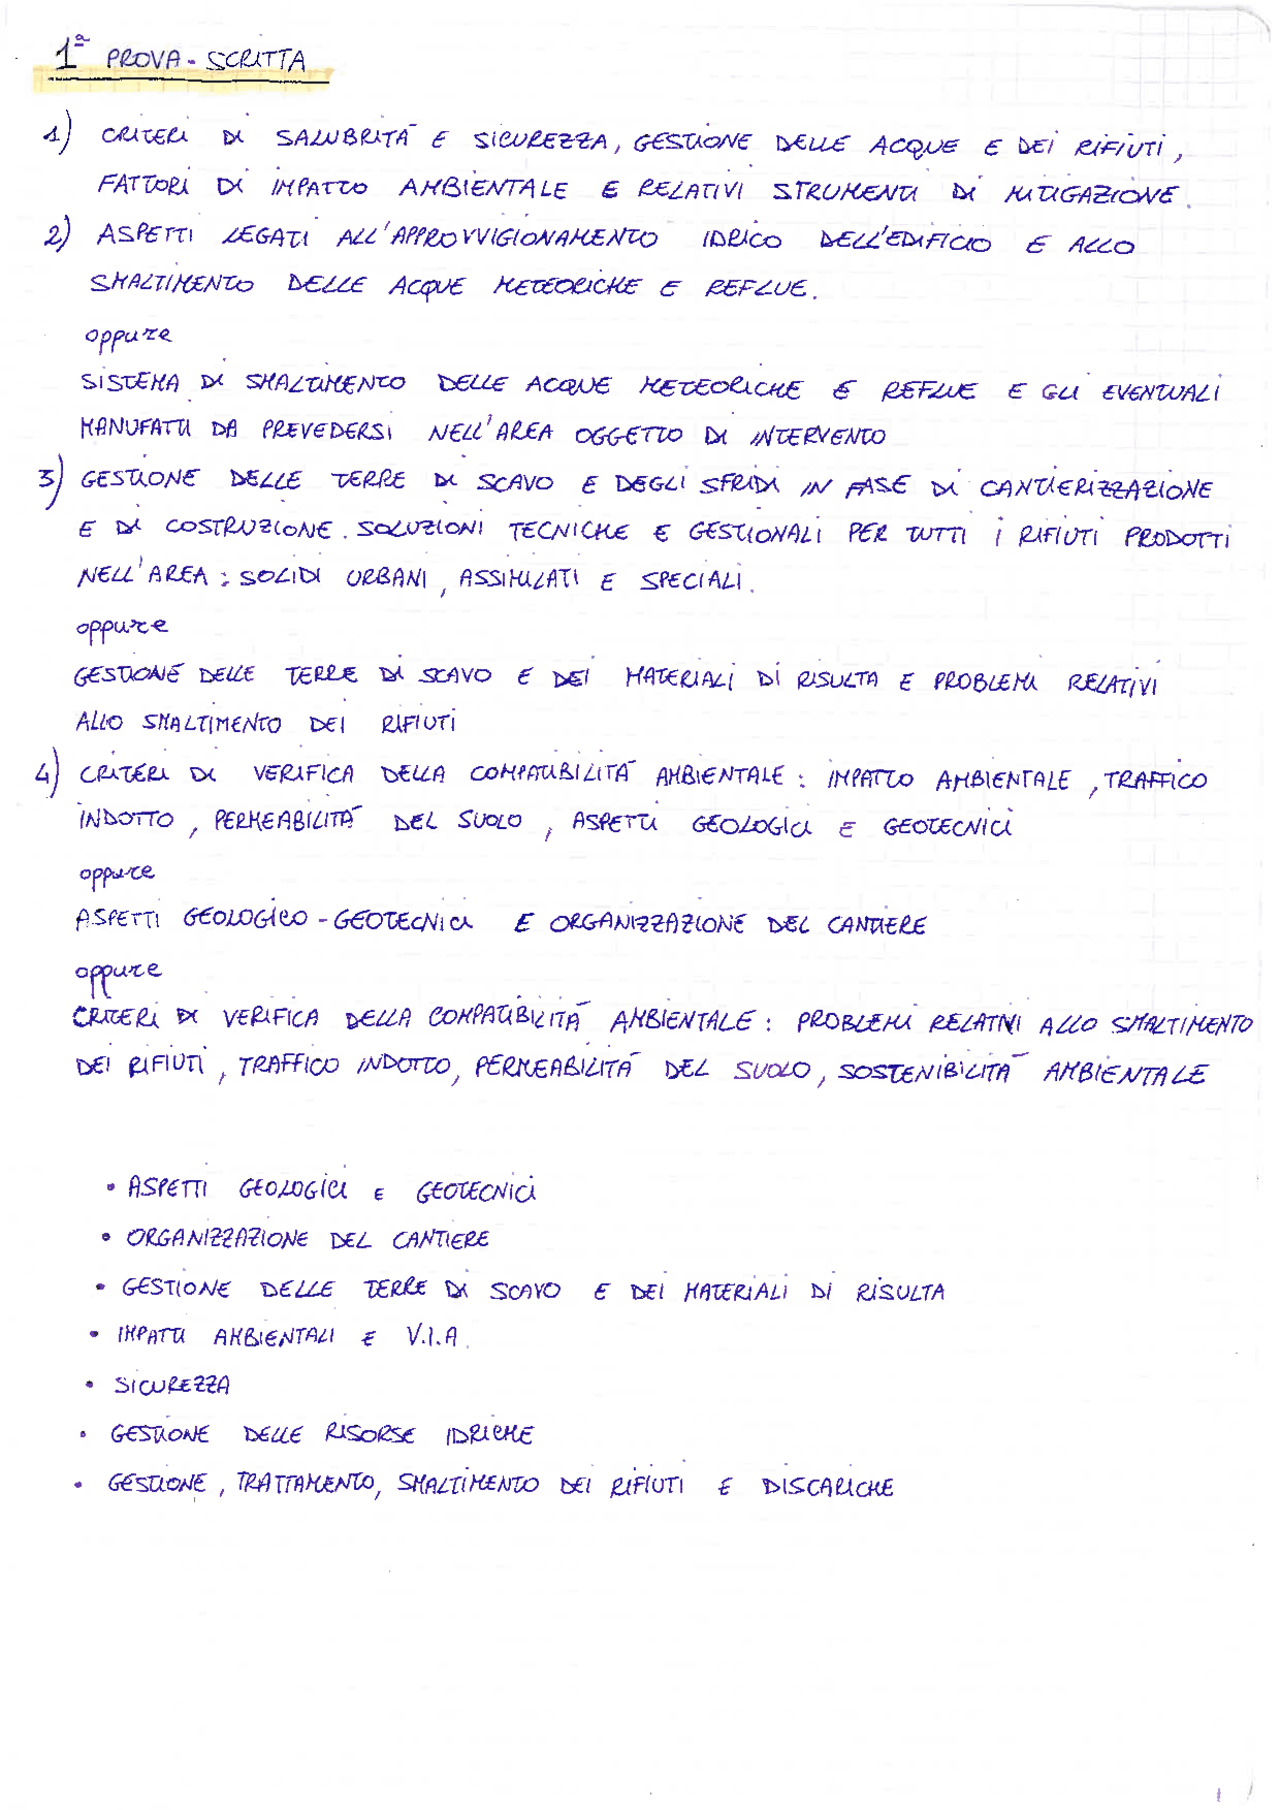 1ª PROVA - SCRITTA
1) CRITERI DI SALUBRITÀ E SICUREZZA, GESTIONE DELLE ACQUE E DEI RIFIUTI,
FATTORI DI IMPATTO AMBIENTALE E RELATIVI STRUMENTI DI MITIGAZIONE.
2) ASPETTI LEGATI ALL'APPROVVIGIONAMENTO IDRICO DELL'EDIFICIO E ALLO
SMALTIMENTO DELLE ACQUE METEORICHE E REFLUE.
oppure
SISTEMA DI SMALTIMENTO DELLE ACQUE METEORICHE E REFLUE E GLI EVENTUALI
MANUFATTI DA PREVEDERSI NELL'AREA OGGETTO DI INTERVENTO
3) GESTIONE DELLE TERRE DI SCAVO E DEGLI SFRIDI IN FASE DI CANTIERIZZAZIONE
E DI COSTRUZIONE. SOLUZIONI TECNICHE E GESTIONALI PER TUTTI I RIFIUTI PRODOTTI
NELL'AREA: SOLIDI URBANI, ASSIMILATI E SPECIALI.
oppure
GESTIONE DELLE TERRE DI SCAVO E DEI MATERIALI DI RISULTA E PROBLEMI RELATIVI
ALLO SMALTIMENTO DEI RIFIUTI
4) CRITERI DI VERIFICA DELLA COMPATIBILITÀ AMBIENTALE: IMPATTO AMBIENTALE, TRAFFICO
INDOTTO, PERMEABILITÀ DEL SUOLO, ASPETTI GEOLOGICI E GEOTECNICI
oppure
ASPETTI GEOLOGICO-GEOTECNICI E ORGANIZZAZIONE DEL CANTIERE
oppure
CRITERI DI VERIFICA DELLA COMPATIBILITÀ AMBIENTALE: PROBLEMI RELATIVI ALLO SMALTIMENTO
DEI RIFIUTI, TRAFFICO INDOTTO, PERMEABILITÀ DEL SUOLO, SOSTENIBILITÀ AMBIENTALE
• ASPETTI GEOLOGICI E GEOTECNICI
• ORGANIZZAZIONE DEL CANTIERE
• GESTIONE DELLE TERRE DI SCAVO E DEI MATERIALI DI RISULTA
• IMPATTI AMBIENTALI E V.I.A.
• SICUREZZA
• GESTIONE DELLE RISORSE IDRICHE
• GESTIONE, TRATTAMENTO, SMALTIMENTO DEI RIFIUTI E DISCARICHE